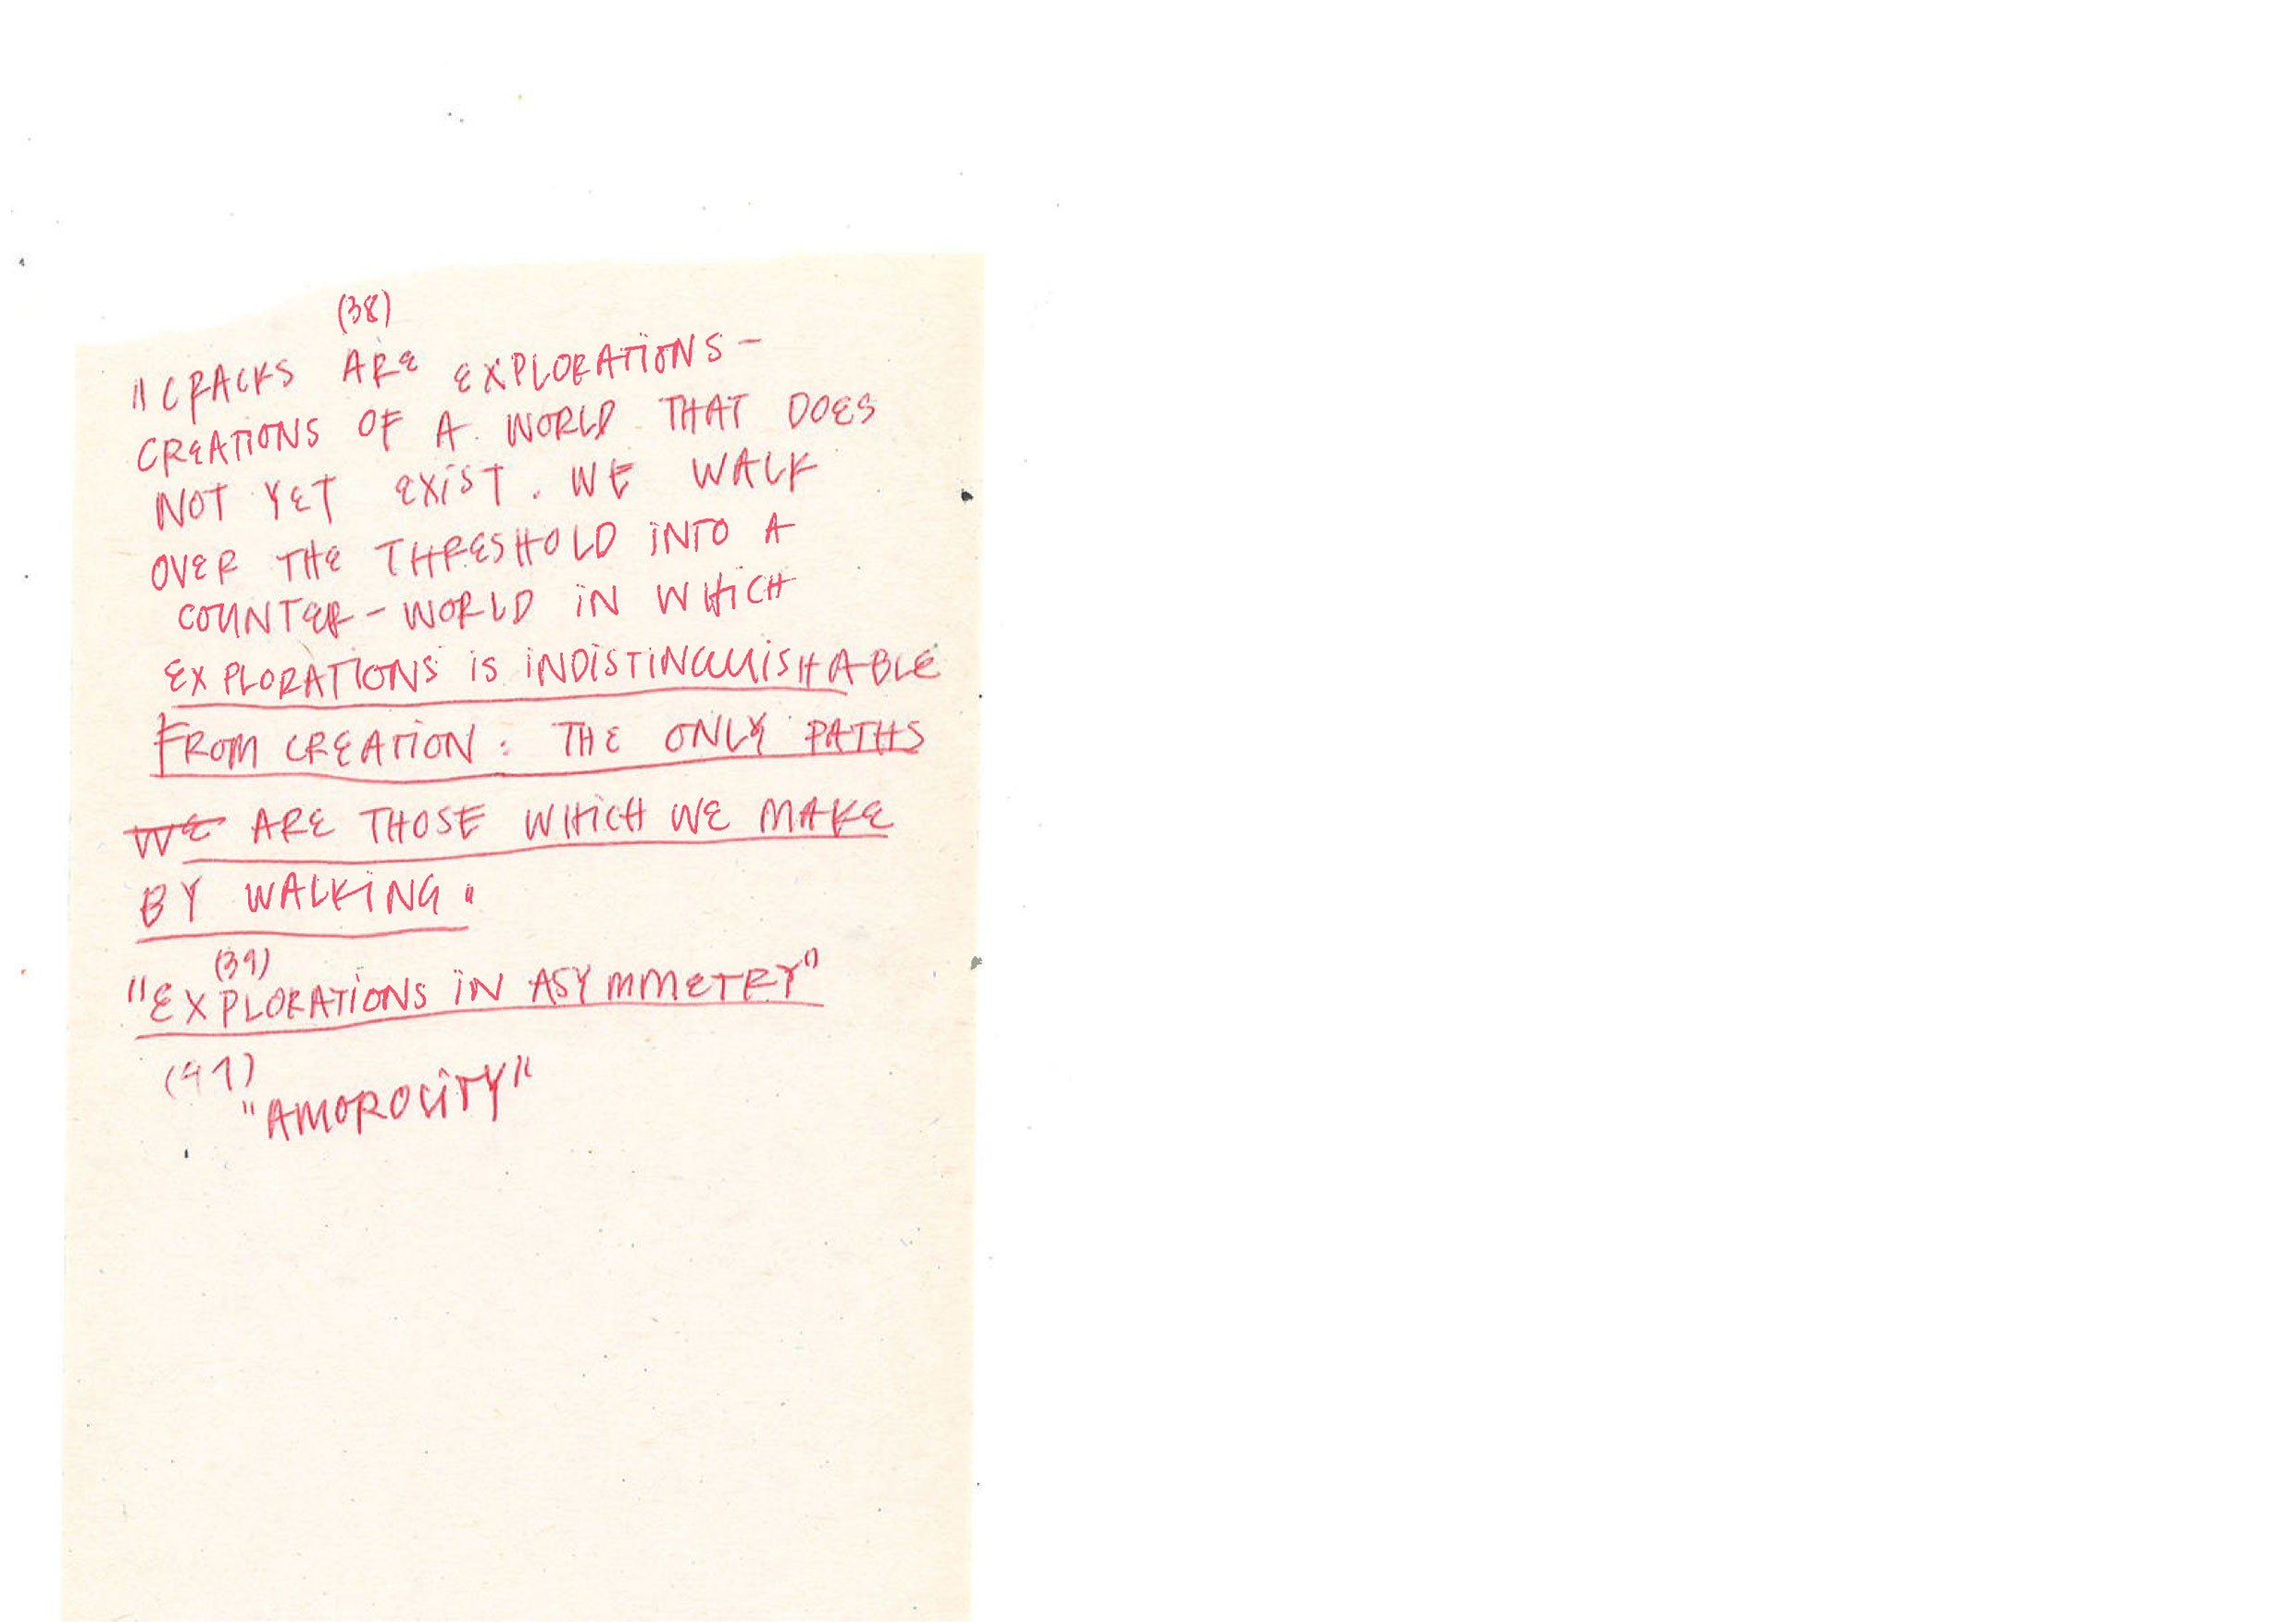 (38)
"CRACKS ARE EXPLORATIONS-
CREATIONS OF A WORLD THAT DOES
NOT YET EXIST. WE WALK
OVER THE THRESHOLD INTO A
COUNTER-WORLD IN WHICH
EXPLORATIONS IS INDISTINGUISHABLE
FROM CREATION: THE ONLY PATHS
WE ARE THOSE WHICH WE MAKE
BY WALKING."
(39)
"EXPLORATIONS IN ASYMMETRY"
(41)
"AMOROCITY"